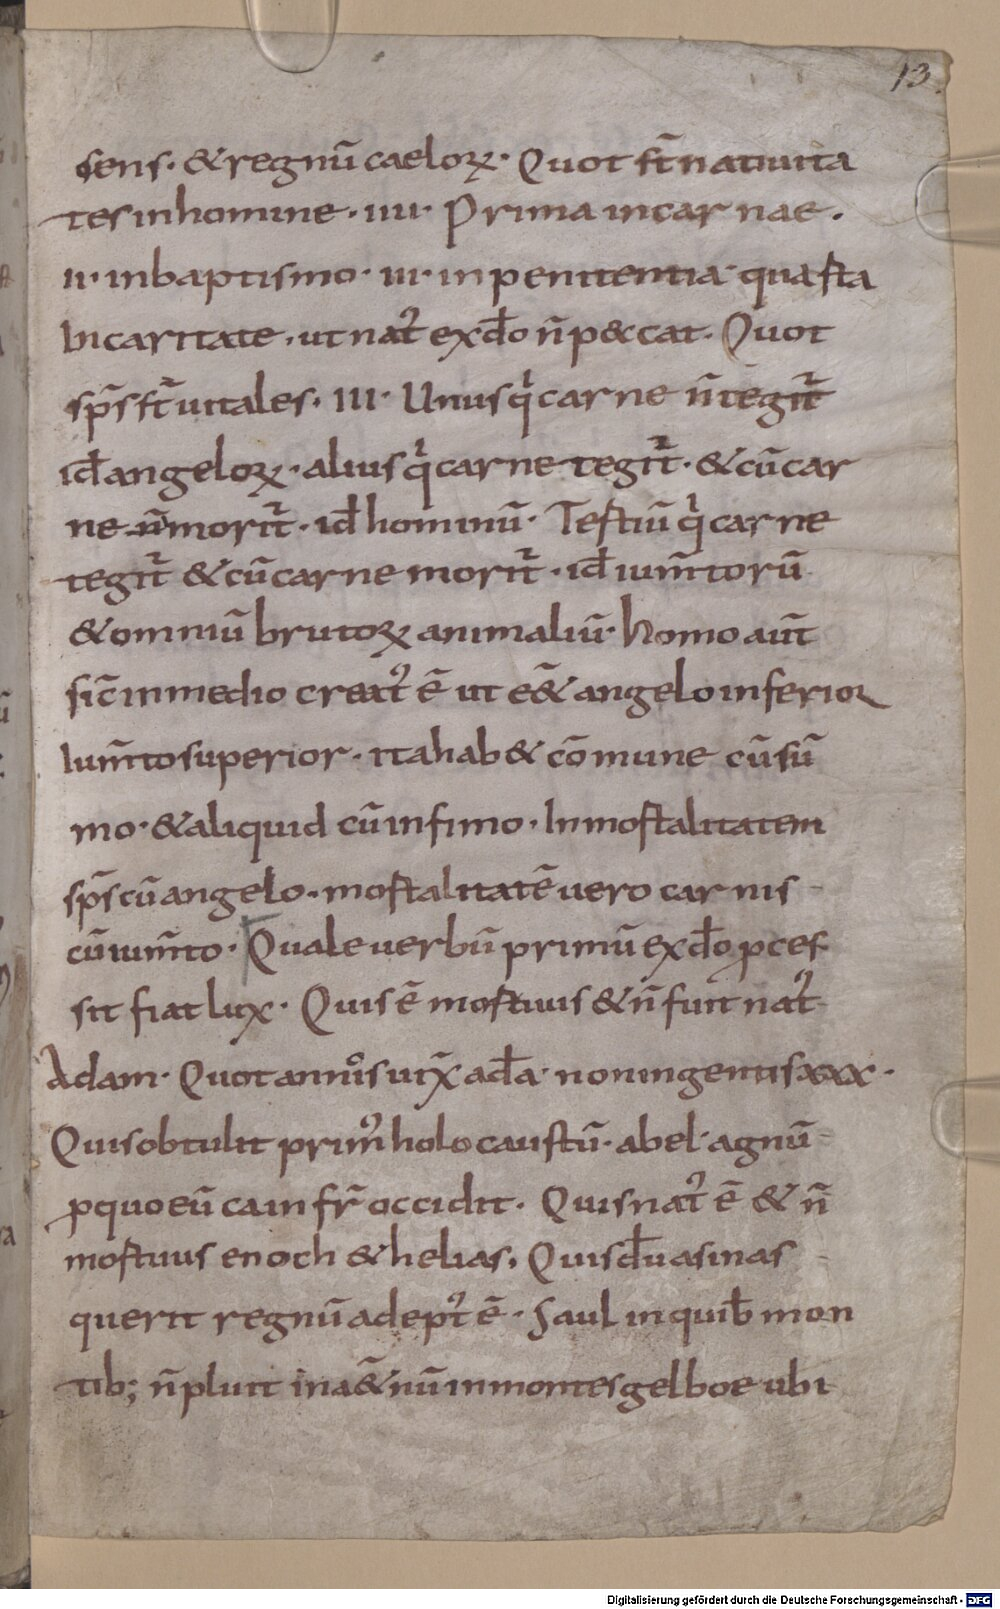 13
sens. & regnū caeloꝝ. Quot st̄ natiuita
tes in homine. iiii. Prima in carnae.
ii. in baptismo. iii. in penitentia quarta
In caritate. ut nat᷒ ex dō n̄ p&cat. Quot
sp̄s st̄ uitales. III. Unus q̇ carne n̄ tegit᷑
id̄ angeloꝝ. alius q̇ carne tegit᷑. & cū car
ne n̄ morit᷑. id̄ hominū. Tertiū q̇ carne
tegit᷑ & cū carne morit᷑. id̄ ium̄torū
& omniū brutoꝝ animaliū. homo aut̄
sic̄ in medio creat᷒ ē ut eē & angelo inferior
Ium̄to superior. ita hab& cōmune cū sū
mo. & aliquid cū infimo. Inmortalitatem
sp̄s cū angelo. mortalitatē uero carnis
cū ium̄to. Quale uerbū primū ex dō ꝓces
sit fiat lux. Quis ē mortuus & n̄ fuit nat᷒
Adam. Quot annos uix̄ ad̄a. noningentis xxx.
Quis obtulit prim᷒ holocaustū. abel agnū
ꝓ quo eū cain fr̄ occidit. Quis nat᷒ ē & n̄
mortuus enoch & helias. Quis d̄ū asinas
querit regnū adept᷒ ē. Saul in quib̄ mon
tib; n̄ pluit in a&̄nū in montes gelboe ubi
Digitalisierung gefördert durch die Deutsche Forschungsgemeinschaft - DFG